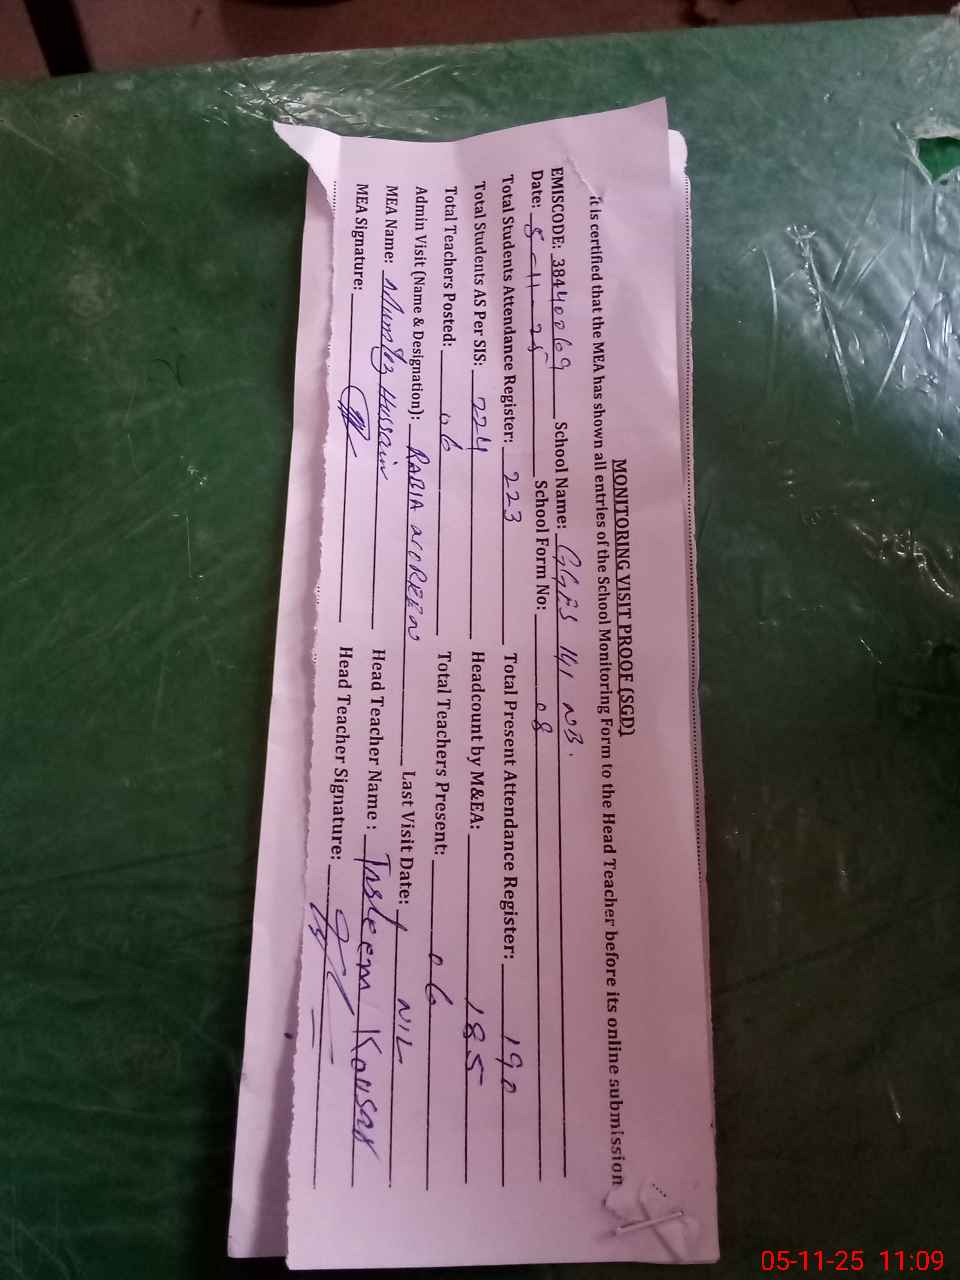 MONITORING VISIT PROOF (SGD)
it is certified that the MEA has shown all entries of the School Monitoring Form to the Head Teacher before its online submission
EMISCODE: 38440069 School Name: GGES 141 NB.
Date: 5-11-25 School Form No: 08
Total Students Attendance Register: 223 Total Present Attendance Register: 190
Total Students AS Per SIS: 224 Headcount by M&EA: 185
Total Teachers Posted: 06 Total Teachers Present: 06
Admin Visit (Name & Designation): RABIA NOREEN Last Visit Date: NIL
MEA Name: Mumtaz Hussain Head Teacher Name: Tasleem Kousar
MEA Signature: Head Teacher Signature:
05-11-25 11:09